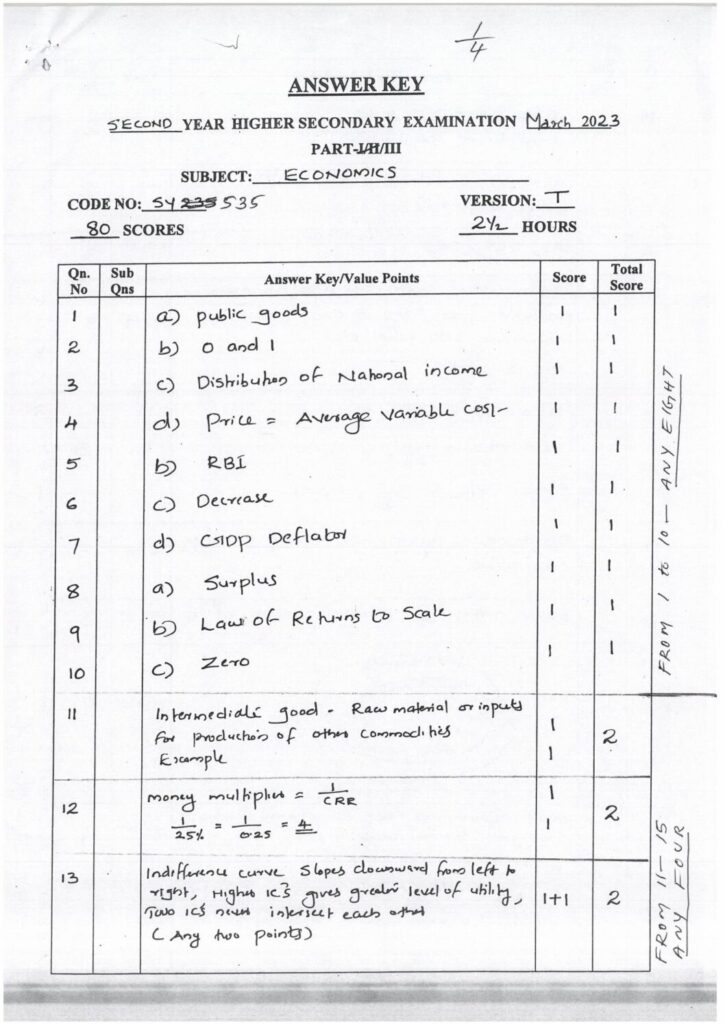 1/4
ANSWER KEY
SECOND YEAR HIGHER SECONDARY EXAMINATION March 2023
PART-I/II/III
SUBJECT: ECONOMICS
CODE NO: SY 235 535
VERSION: T
80 SCORES
2½ HOURS
Qn. No Sub Qns Answer Key/Value Points Score Total Score
1 a) public goods 1 1
2 b) 0 and 1 1 1
3 c) Distribution of National income 1 1
4 d) Price = Average Variable cost 1 1
5 b) RBI 1 1
6 c) Decrease 1 1
7 d) GDP Deflator 1 1
8 a) Surplus 1 1
9 b) Law of Returns to Scale 1 1
10 c) Zero 1 1
FROM 1 to 10 - ANY EIGHT
11 Intermediate good - Raw material or inputs 1
for production of other commodities 2
Example 1
12 money multiplier = 1/CRR 1
1/25% = 1/0.25 = 4 1 2
13 Indifference curve slopes downward from left to
right, Higher IC's gives greater level of utility, 1+1 2
Two IC's never intersect each other
(Any two points)
FROM 11-15
ANY FOUR